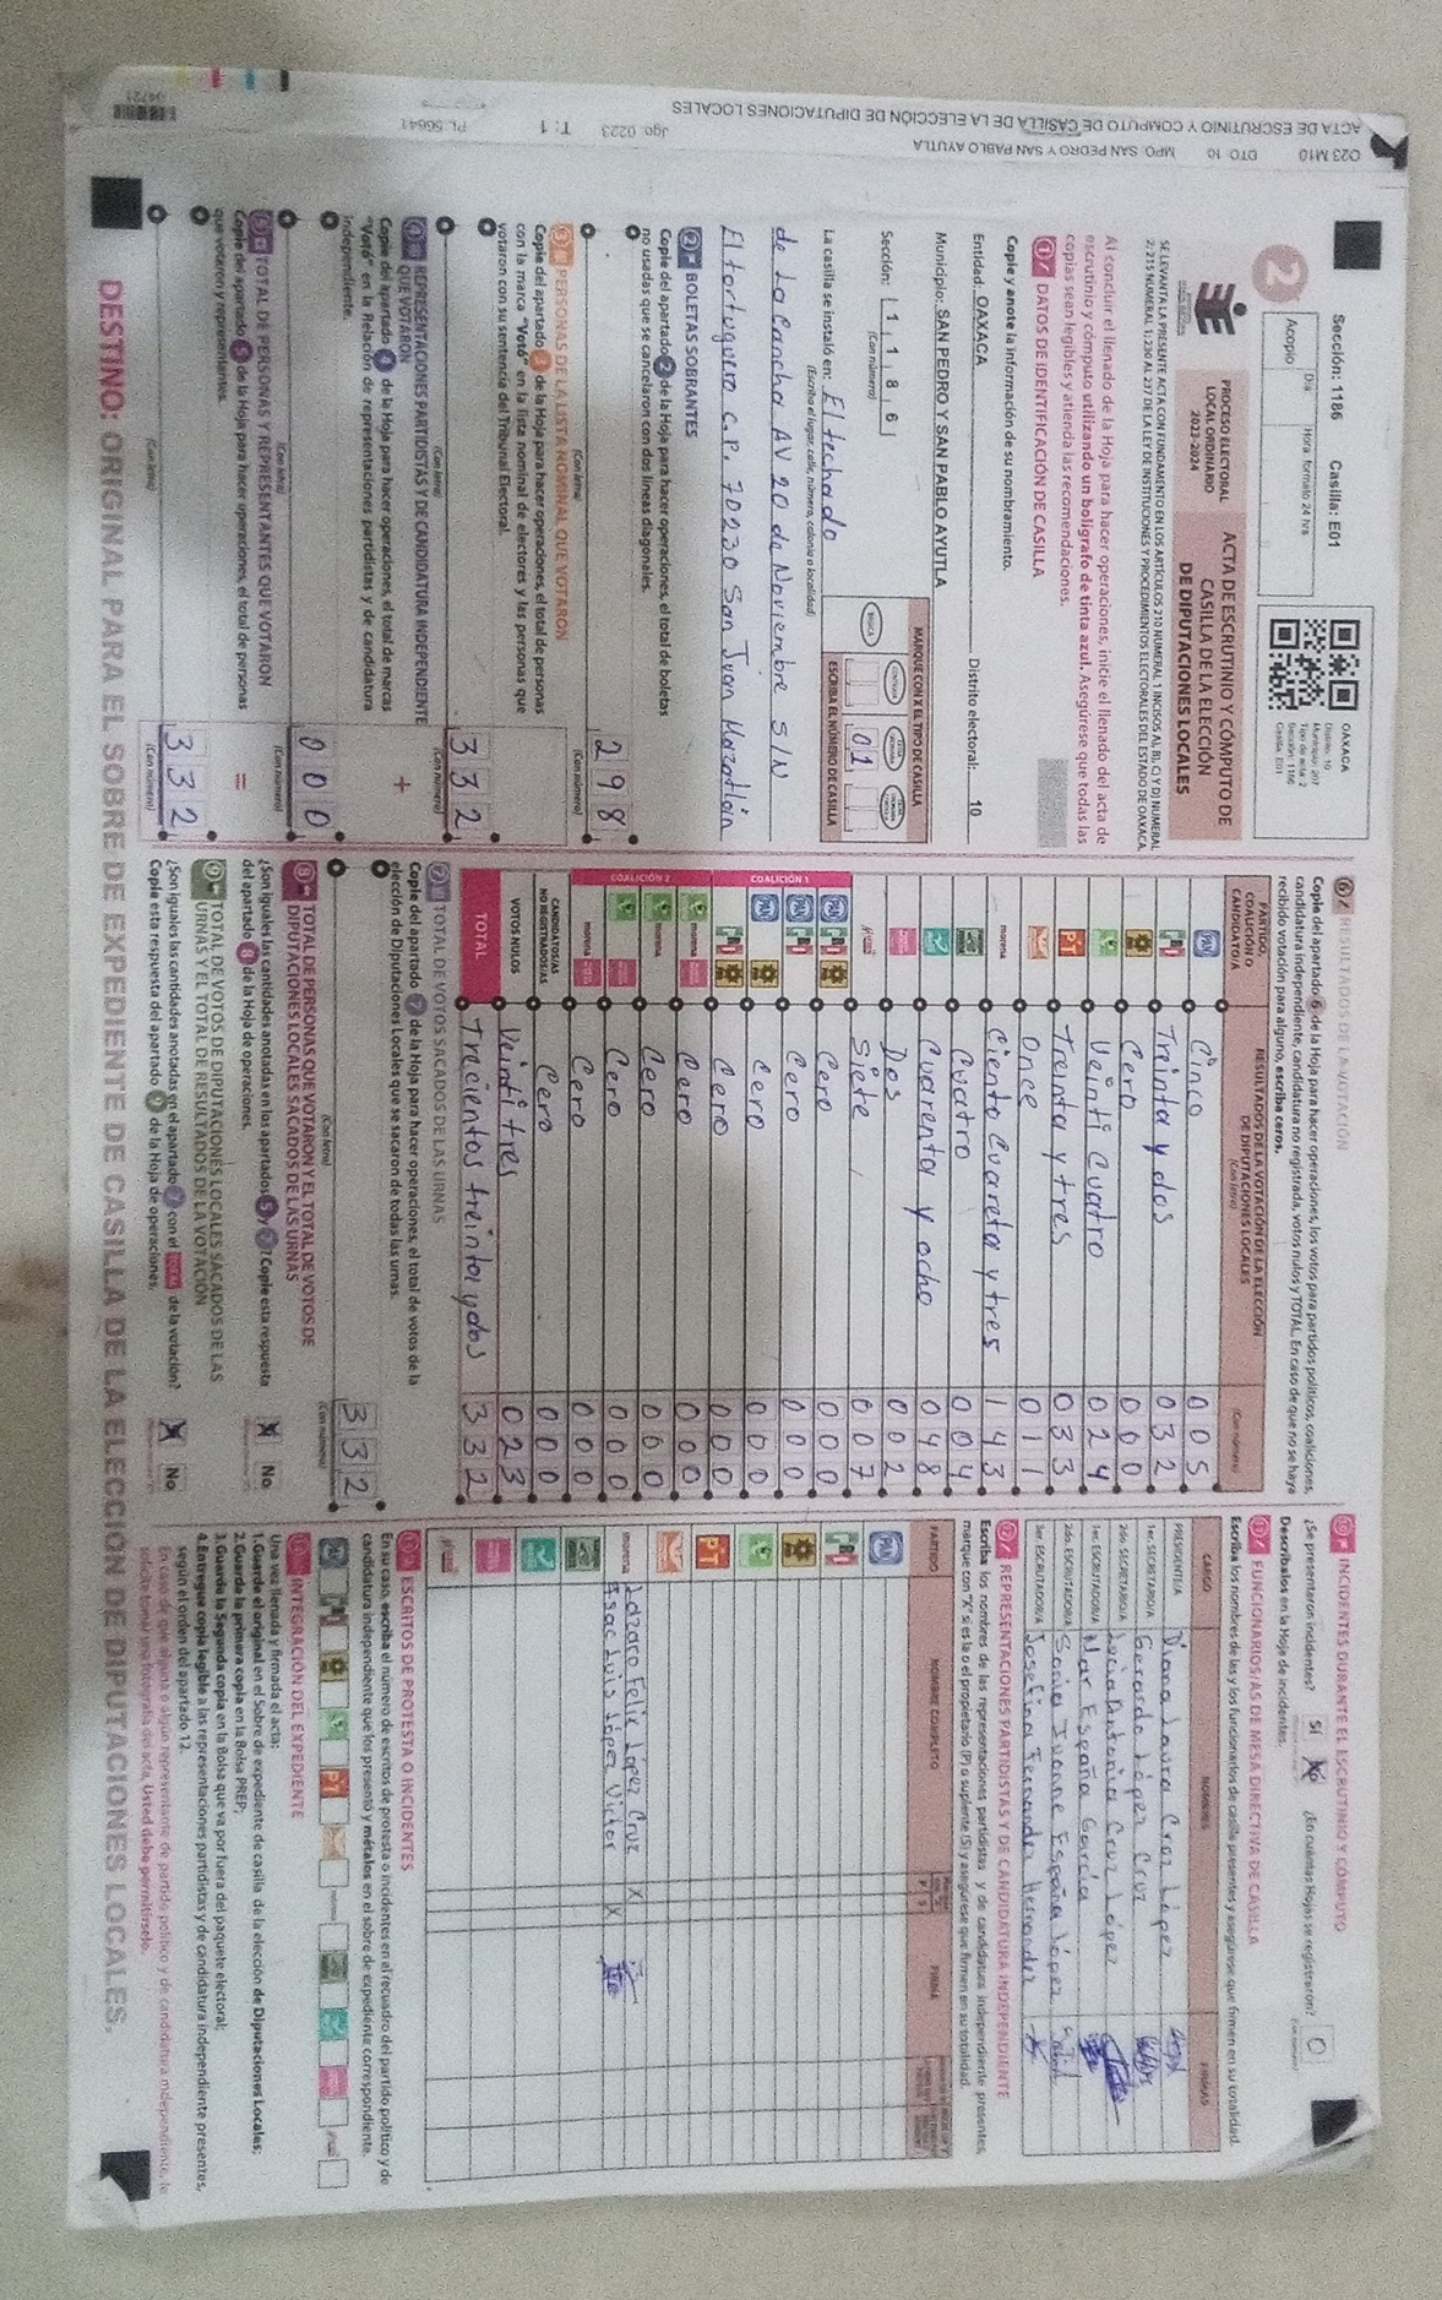 O23 M10 DTO: 10 MPO: SAN PEDRO Y SAN PABLO AYUTLA
ACTA DE ESCRUTINIO Y CÓMPUTO DE CASILLA DE LA ELECCIÓN DE DIPUTACIONES LOCALES
Jgo. 0223 T: 1 PL 50641
Sección: 1186 Casilla: E01
2
Acopio
Día Hora: formato 24 hrs
OAXACA
Distrito: 10
Municipio: 207
Tipo de acta: 2
Sección: 1186
Casilla: E01
PROCESO ELECTORAL
LOCAL ORDINARIO
2023-2024
ACTA DE ESCRUTINIO Y CÓMPUTO DE
CASILLA DE LA ELECCIÓN
DE DIPUTACIONES LOCALES
SE LEVANTA LA PRESENTE ACTA CON FUNDAMENTO EN LOS ARTÍCULOS 210 NUMERAL 1 INCISOS A), B), C) Y D) NUMERAL
2; 215 NUMERAL 1; 230 AL 237 DE LA LEY DE INSTITUCIONES Y PROCEDIMIENTOS ELECTORALES DEL ESTADO DE OAXACA.
Al concluir el llenado de la Hoja para hacer operaciones, inicie el llenado del acta de
escrutinio y cómputo utilizando un bolígrafo de tinta azul. Asegúrese que todas las
copias sean legibles y atienda las recomendaciones.
1 DATOS DE IDENTIFICACIÓN DE CASILLA
Copie y anote la información de su nombramiento.
Entidad: OAXACA Distrito electoral: 10
Municipio: SAN PEDRO Y SAN PABLO AYUTLA
Sección: 1 1 8 6
(Con número)
MARQUE CON X EL TIPO DE CASILLA
BÁSICA
01
ESCRIBA EL NÚMERO DE CASILLA
La casilla se instaló en: El techado
(Escriba el lugar, calle, número, colonia o localidad)
de La Cancha AV 20 de Noviembre S/N
El tortuguero C.P. 70230 San Juan Mazatlán
2 BOLETAS SOBRANTES
Copie del apartado 2 de la Hoja para hacer operaciones, el total de boletas
no usadas que se cancelaron con dos líneas diagonales.
298
(Con letra) (Con número)
3 PERSONAS DE LA LISTA NOMINAL QUE VOTARON
Copie del apartado 3 de la Hoja para hacer operaciones, el total de personas
con la marca "Votó" en la lista nominal de electores y las personas que
votaron con su sentencia del Tribunal Electoral.
332
(Con letra) (Con número)
4 REPRESENTACIONES PARTIDISTAS Y DE CANDIDATURA INDEPENDIENTE
QUE VOTARON +
Copie del apartado 4 de la Hoja para hacer operaciones, el total de marcas
"Votó" en la Relación de representaciones partidistas y de candidatura
independiente.
000
(Con letra) (Con número)
5 TOTAL DE PERSONAS Y REPRESENTANTES QUE VOTARON =
Copie del apartado 5 de la Hoja para hacer operaciones, el total de personas
que votaron y representantes.
332
(Con letra) (Con número)
6 RESULTADOS DE LA VOTACIÓN
Copie del apartado 6 de la Hoja para hacer operaciones, los votos para partidos políticos, coaliciones,
candidatura independiente, candidatura no registrada, votos nulos y TOTAL. En caso de que no se haya
recibido votación para alguno, escriba ceros.
PARTIDO, COALICIÓN O CANDIDATO/A
RESULTADOS DE LA VOTACIÓN DE LA ELECCIÓN DE DIPUTACIONES LOCALES
(Con letra) (Con número)
PAN Cinco 005
PRI Treinta y dos 032
Cero 000
Veinti Cuatro 024
PT Treinta y tres 033
Once 011
morena Ciento Cuareta y tres 143
Cuatro 004
Cuarenta y ocho 048
Dos 002
Siete 007
COALICIÓN 1
PAN PRI Cero 000
PAN PRI Cero 000
PAN Cero 000
PRI Cero 000
COALICIÓN 2
morena Cero 000
morena Cero 000
Cero 000
morena Cero 000
CANDIDATOS/AS NO REGISTRADOS/AS Cero 000
VOTOS NULOS Veinti tres 023
TOTAL Trecientos treinta y dos 332
7 TOTAL DE VOTOS SACADOS DE LAS URNAS
Copie del apartado 7 de la Hoja para hacer operaciones, el total de votos de la
elección de Diputaciones Locales que se sacaron de todas las urnas.
332
(Con letra) (Con número)
8 TOTAL DE PERSONAS QUE VOTARON Y EL TOTAL DE VOTOS DE
DIPUTACIONES LOCALES SACADOS DE LAS URNAS
¿Son iguales las cantidades anotadas en los apartados 5 y 7? Copie esta respuesta
del apartado 8 de la Hoja de operaciones.
X No
9 TOTAL DE VOTOS DE DIPUTACIONES LOCALES SACADOS DE LAS
URNAS Y EL TOTAL DE RESULTADOS DE LA VOTACIÓN
¿Son iguales las cantidades anotadas en el apartado 7 con el TOTAL de la votación?
Copie esta respuesta del apartado 9 de la Hoja de operaciones.
X No
10 INCIDENTES DURANTE EL ESCRUTINIO Y CÓMPUTO
¿Se presentaron incidentes? Sí No ¿En cuántas Hojas se registraron? 0
Descríbalos en la Hoja de incidentes.
11 FUNCIONARIOS/AS DE MESA DIRECTIVA DE CASILLA
Escriba los nombres de las y los funcionarios de casilla presentes y asegúrese que firmen en su totalidad.
CARGO NOMBRES FIRMAS
PRESIDENTE/A Diana Laura Cruz López
1er. SECRETARIO/A Gerardo López Cruz
2do. SECRETARIO/A Lucia Antonia Cruz López
1er. ESCRUTADOR/A Mar España García
2do. ESCRUTADOR/A Sonia Ivonne España López
3er. ESCRUTADOR/A Josefina Fernandez Hernandez
12 REPRESENTACIONES PARTIDISTAS Y DE CANDIDATURA INDEPENDIENTE
Escriba los nombres de las representaciones partidistas y de candidatura independiente presentes,
marque con "X" si es la o el propietario (P) o suplente (S) y asegúrese que firmen en su totalidad.
PARTIDO NOMBRE COMPLETO P S FIRMA
PAN
PRI
PT
morena Lázaro Felix López Cruz X
Isac Luis López Victor X
13 ESCRITOS DE PROTESTA O INCIDENTES
En su caso, escriba el número de escritos de protesta o incidentes en el recuadro del partido político y de
candidatura independiente que los presentó y métalos en el sobre de expediente correspondiente.
14 INTEGRACIÓN DEL EXPEDIENTE
Una vez llenada y firmada el acta:
1. Guarde el original en el Sobre de expediente de casilla de la elección de Diputaciones Locales;
2. Guarda la primera copia en la Bolsa PREP;
3. Guarda la Segunda copia en la Bolsa que va por fuera del paquete electoral;
4. Entregue copia legible a las representaciones partidistas y de candidatura independiente presentes,
según el orden del apartado 12.
En caso de que alguna o algún representante de partido político y de candidatura independiente, le
solicite tomar una fotografía del acta, Usted debe permitírselo.
DESTINO: ORIGINAL PARA EL SOBRE DE EXPEDIENTE DE CASILLA DE LA ELECCIÓN DE DIPUTACIONES LOCALES.